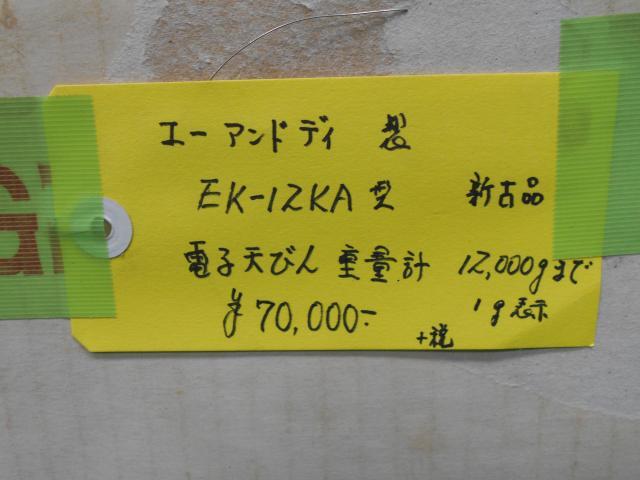 エー アンド デイ 製
EK-12KA 型 新古品
電子天びん 重量計 12,000gまで
¥70,000- 1g表示
+税
G